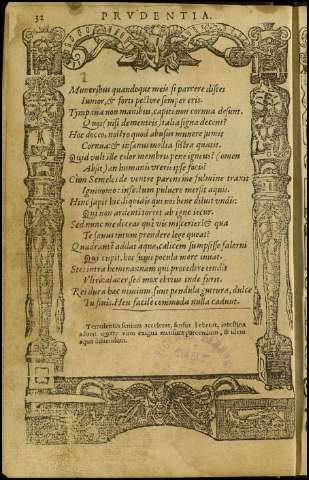 32 PRVDENTIA.
Muneribus quandoque meis si parcere disces
Iunior, & forti pectore semper eris.
Tympana non manibus, capiti non cornua desunt.
Quos nisi dementeis talia signa decent?
Hoc doceo, nostro quod abusus munere sumit
Cornua: & insanus mollia sistra quatit.
Quid vult ille color membris pene igneus? (omen
Absit) an humani vreris ipse foci?
Cùm Semeles de ventre parens me fulmine traxit
Ignivomo: infectum pulvere mersit aquis.
Hinc sapit hic, liquidis qui nos bene diluit vndis:
Qui non ardenti torret ab igne iecur.
Sed nunc me doceas quî vis misceri? & qua
Te sanus tutum prendere lege queat?
Quadrantem addat aquae, calicem sumpsisse falerni
Qui cupit, hoc sumi pocula more iuvat.
Stes intra heminas: nam qui procedere tendit
Vlterà alacer, sed mox ebrius inde furit.
Res dura haec nimium, sunt pendula guttura, dulce
Tu fluis. Heu facile commoda nulla cadunt.
Temulentia senium accelerat, sensus hebetat, intestina
adurit.
aqua diluendum.